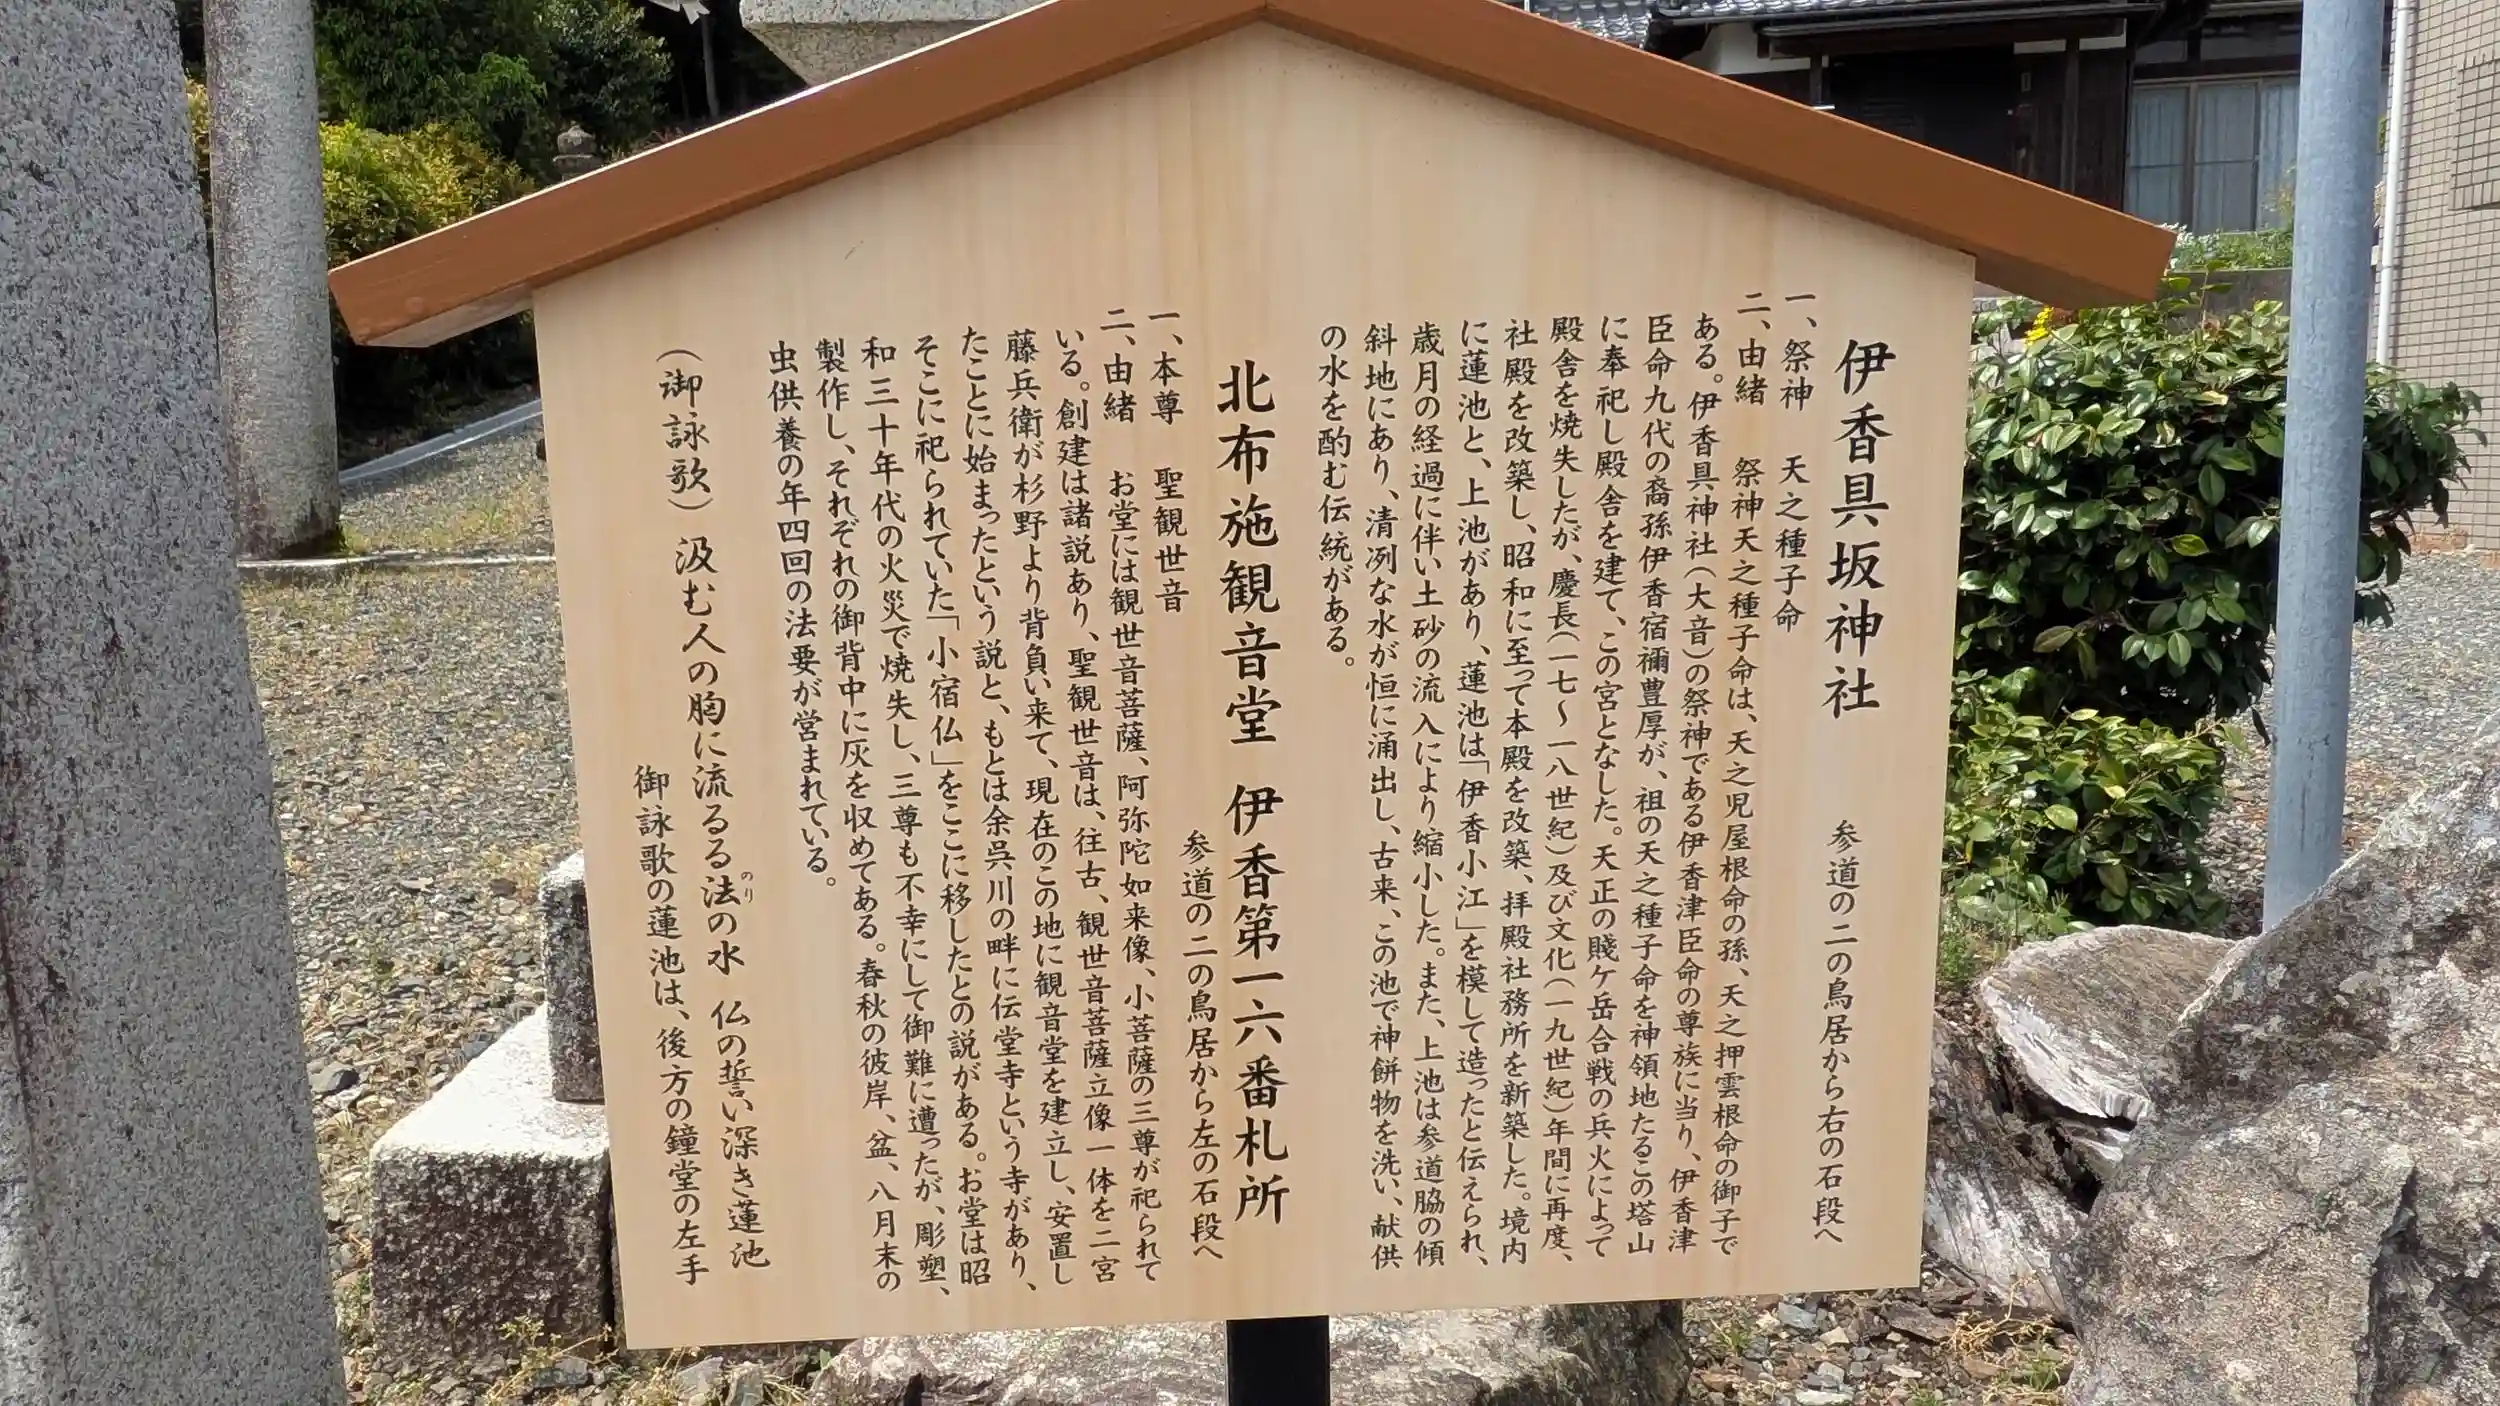 伊香具坂神社
参道の二の鳥居から右の石段へ
一、祭神　天之種子命
二、由緒　祭神天之種子命は、天之児屋根命の孫、天之押雲根命の御子で
ある。伊香具神社(大音)の祭神である伊香津臣命の尊族に当り、伊香津
臣命九代の裔孫伊香宿禰豊厚が、祖の天之種子命を神領地たるこの塔山
に奉祀し殿舎を建て、この宮となした。天正の賤ケ岳合戦の兵火によって
殿舎を焼失したが、慶長(一七〜一八世紀)及び文化(一九世紀)年間に再度、
社殿を改築し、昭和に至って本殿を改築、拝殿社務所を新築した。境内
に蓮池と、上池があり、蓮池は「伊香小江」を模して造ったと伝えられ、
歳月の経過に伴い土砂の流入により縮小した。また、上池は参道脇の傾
斜地にあり、清冽な水が恒に涌出し、古来、この池で神餅物を洗い、献供
の水を酌む伝統がある。
北布施観音堂　伊香第一六番札所
参道の二の鳥居から左の石段へ
一、本尊　聖観世音
二、由緒　お堂には観世音菩薩、阿弥陀如来像、小菩薩の三尊が祀られて
いる。創建は諸説あり、聖観世音は、往古、観世音菩薩立像一体を二宮
藤兵衛が杉野より背負い来て、現在のこの地に観音堂を建立し、安置し
たことに始まったという説と、もとは余呉川の畔に伝堂寺という寺があり、
そこに祀られていた「小宿仏」をここに移したとの説がある。お堂は昭
和三十年代の火災で焼失し、三尊も不幸にして御難に遭ったが、彫塑、
製作し、それぞれの御背中に灰を収めてある。春秋の彼岸、盆、八月末の
虫供養の年四回の法要が営まれている。
(御詠歌)汲む人の胸に流るる法の水　仏の誓い深き蓮池
のり
御詠歌の蓮池は、後方の鐘堂の左手